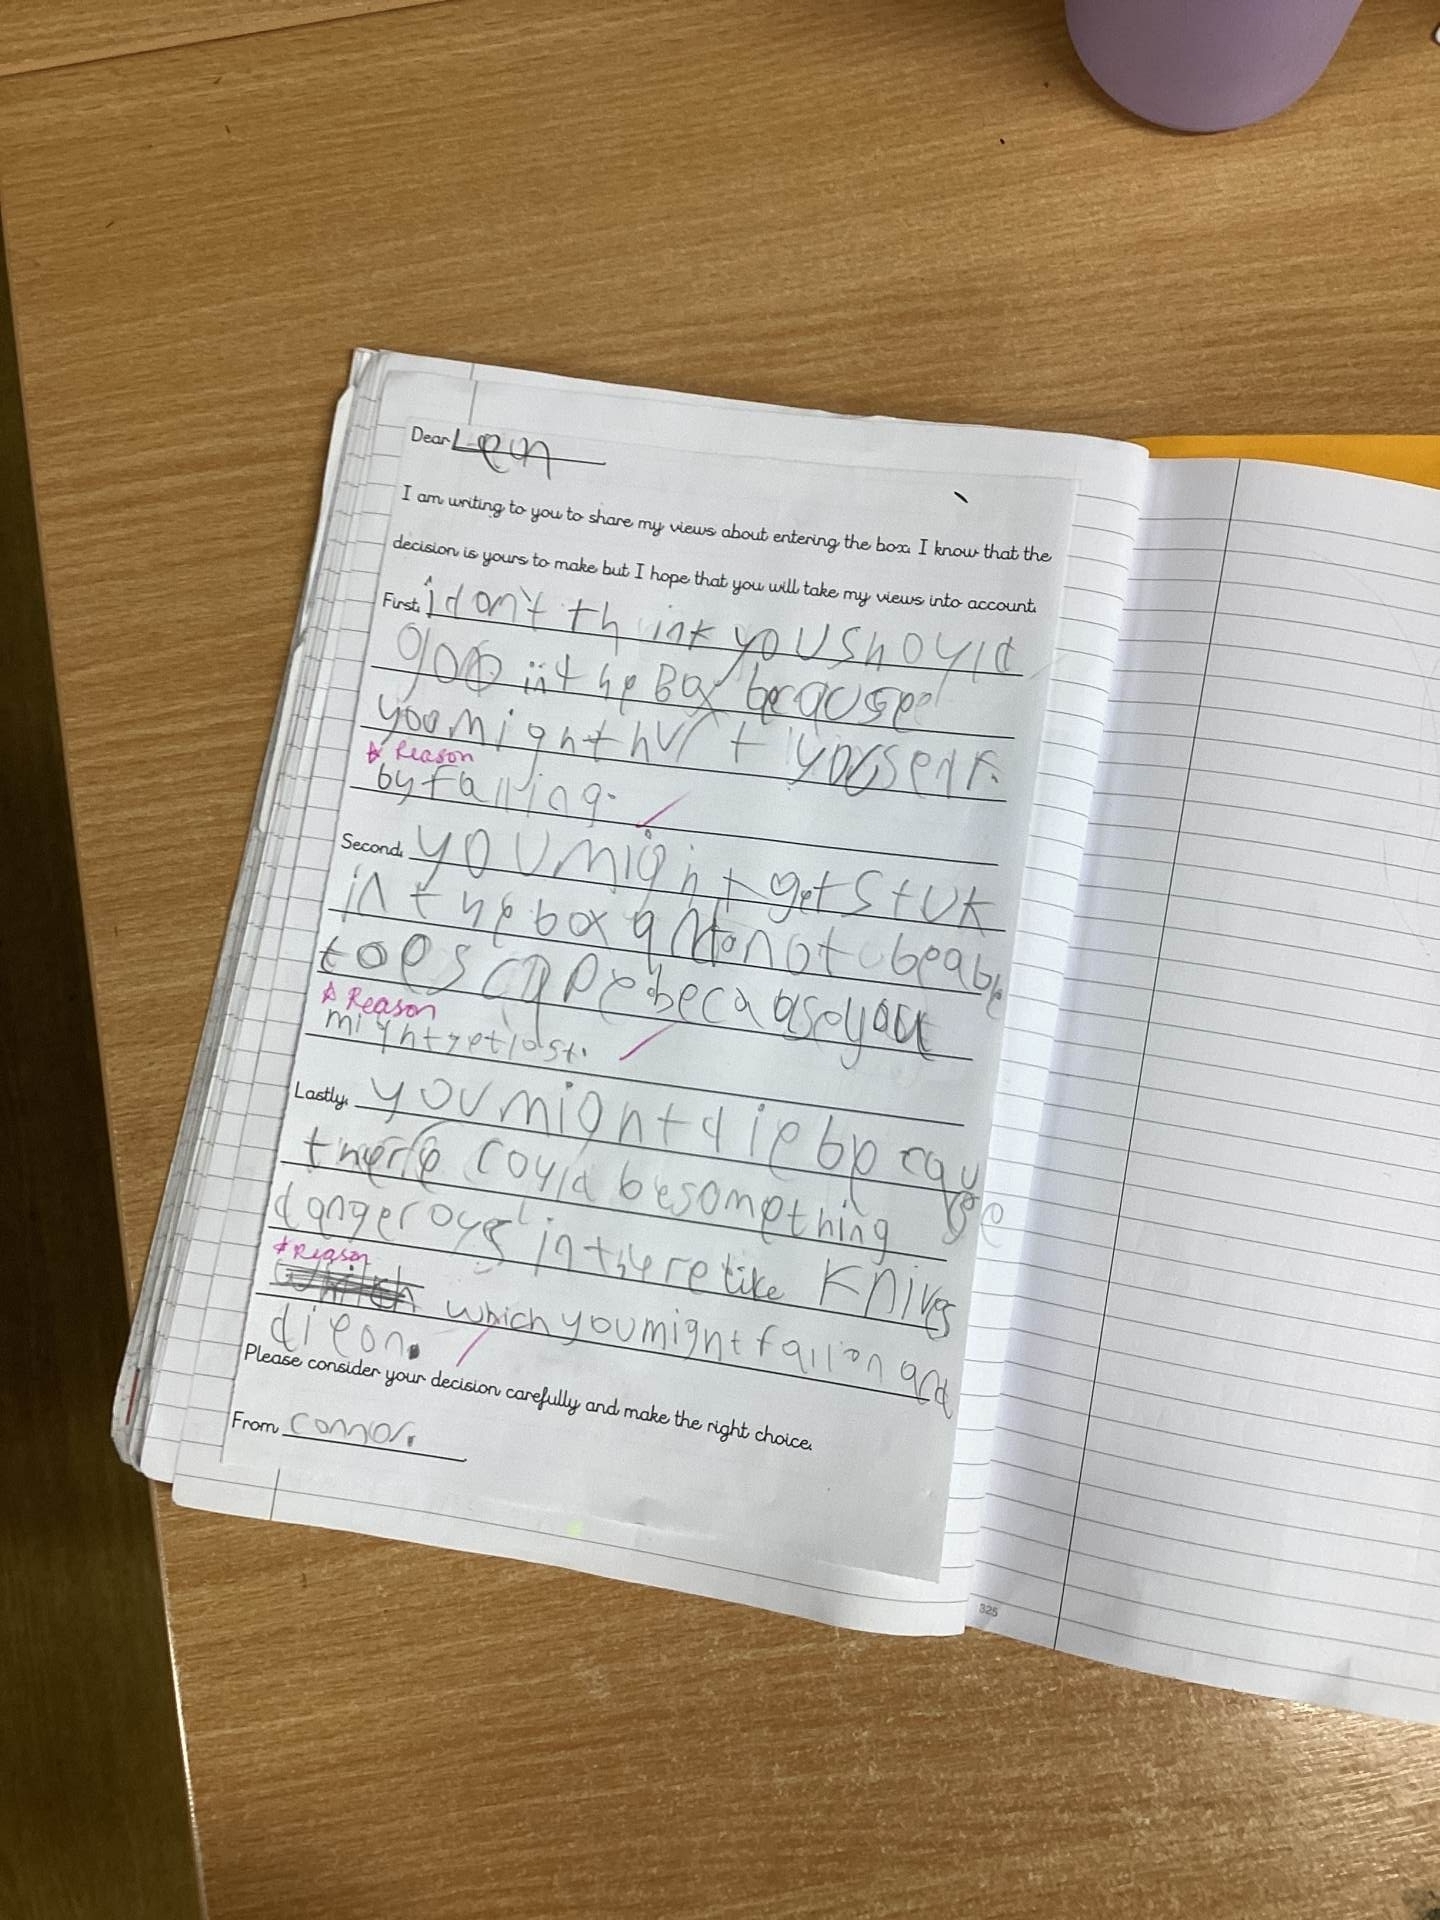 Dear Leon
I am writing to you to share my views about entering the box. I know that the
decision is yours to make but I hope that you will take my views into account.
First, i don't think you should
go in the Box because
you might hurt yourself.
* Reason
by falling.
Second, you might get stuk
in the box and not be able
to escape because you
* Reason
might get lost.
Lastly, you might die because
there could be something
dangerous in there like Knives
* Reason
which you might fall on and
die on.
Please consider your decision carefully and make the right choice.
From connor.
325